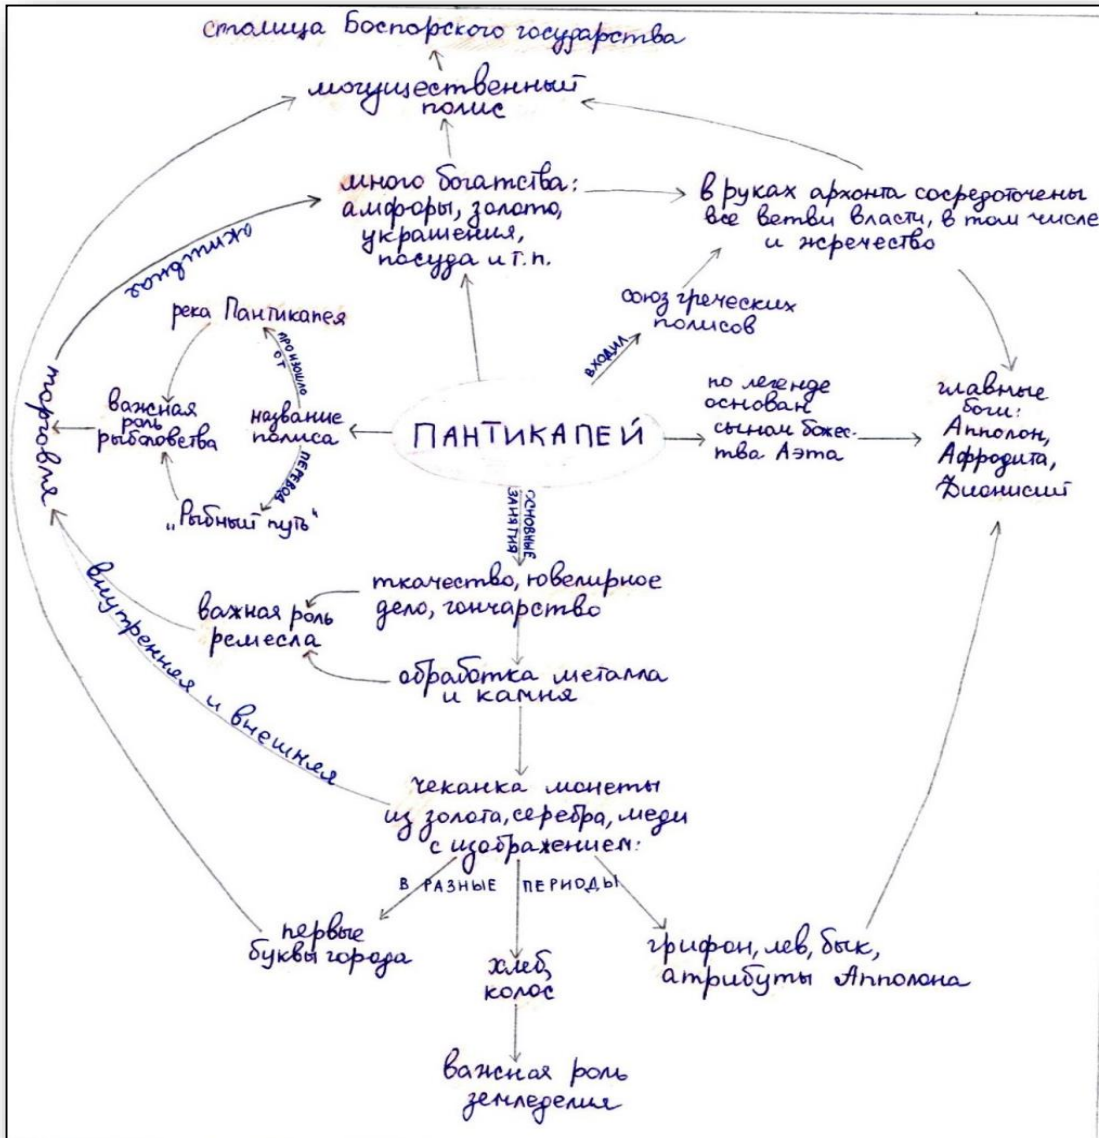 столица Боспорского государства
могущественный
полис
много богатства:
амфоры, золото,
украшения,
посуда и т.п.
в руках архонта сосредоточены
все ветви власти, в том числе
и жречество
активная
союз греческих
полисов
входил
река Пантикапея
произошло
от
название
полиса
перевод
„Рыбный путь“
важная
роль
рыболовства
торговля
ПАНТИКАПЕЙ
по легенде
основан
сыном божес-
тва Аэта
главные
боги:
Апполон,
Афродита,
Дионисий
основные
занятия
ткачество, ювелирное
дело, гончарство
важная роль
ремесла
обработка металла
и камня
внутренняя и внешняя
чеканка монеты
из золота, серебра, меди
с изображением:
В РАЗНЫЕ ПЕРИОДЫ
первые
буквы города
хлеб,
колос
грифон, лев, бык,
атрибуты Апполона
важная роль
земледелия